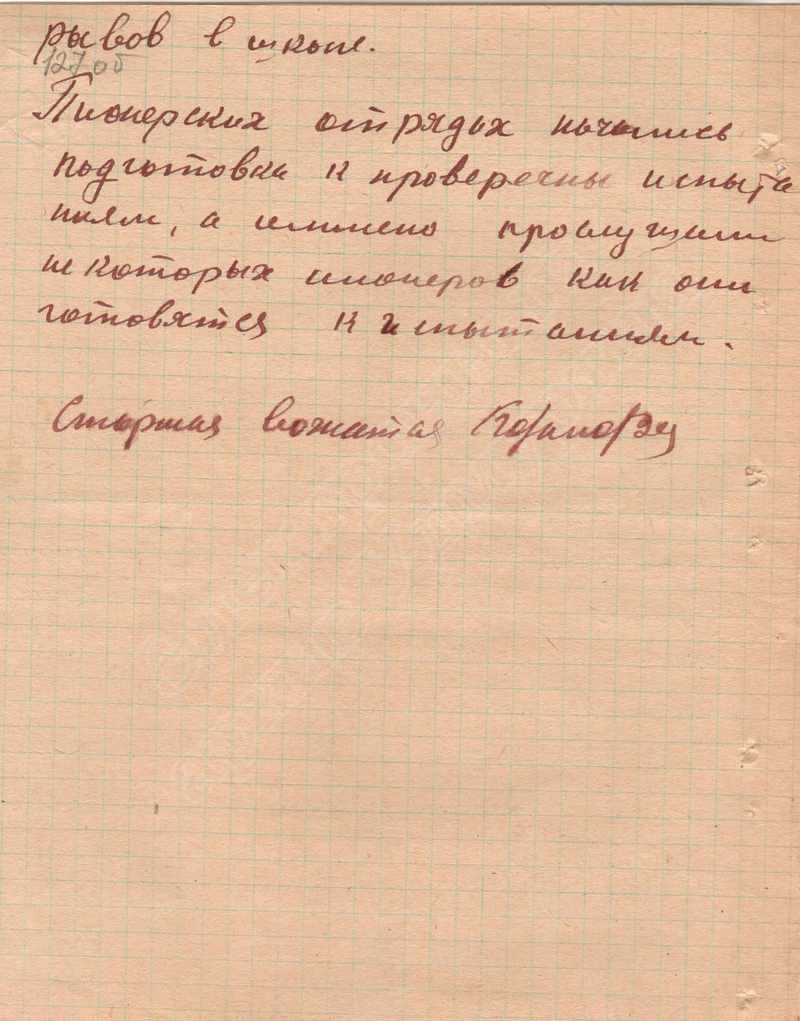 рывов в школе.
127 об
Пионерских отрядых начались
подготовка к проверечны испыта
ниям, а именно прослушали
некоторых пионеров как они
готовятся к испытаниям.
Старшая вожатая